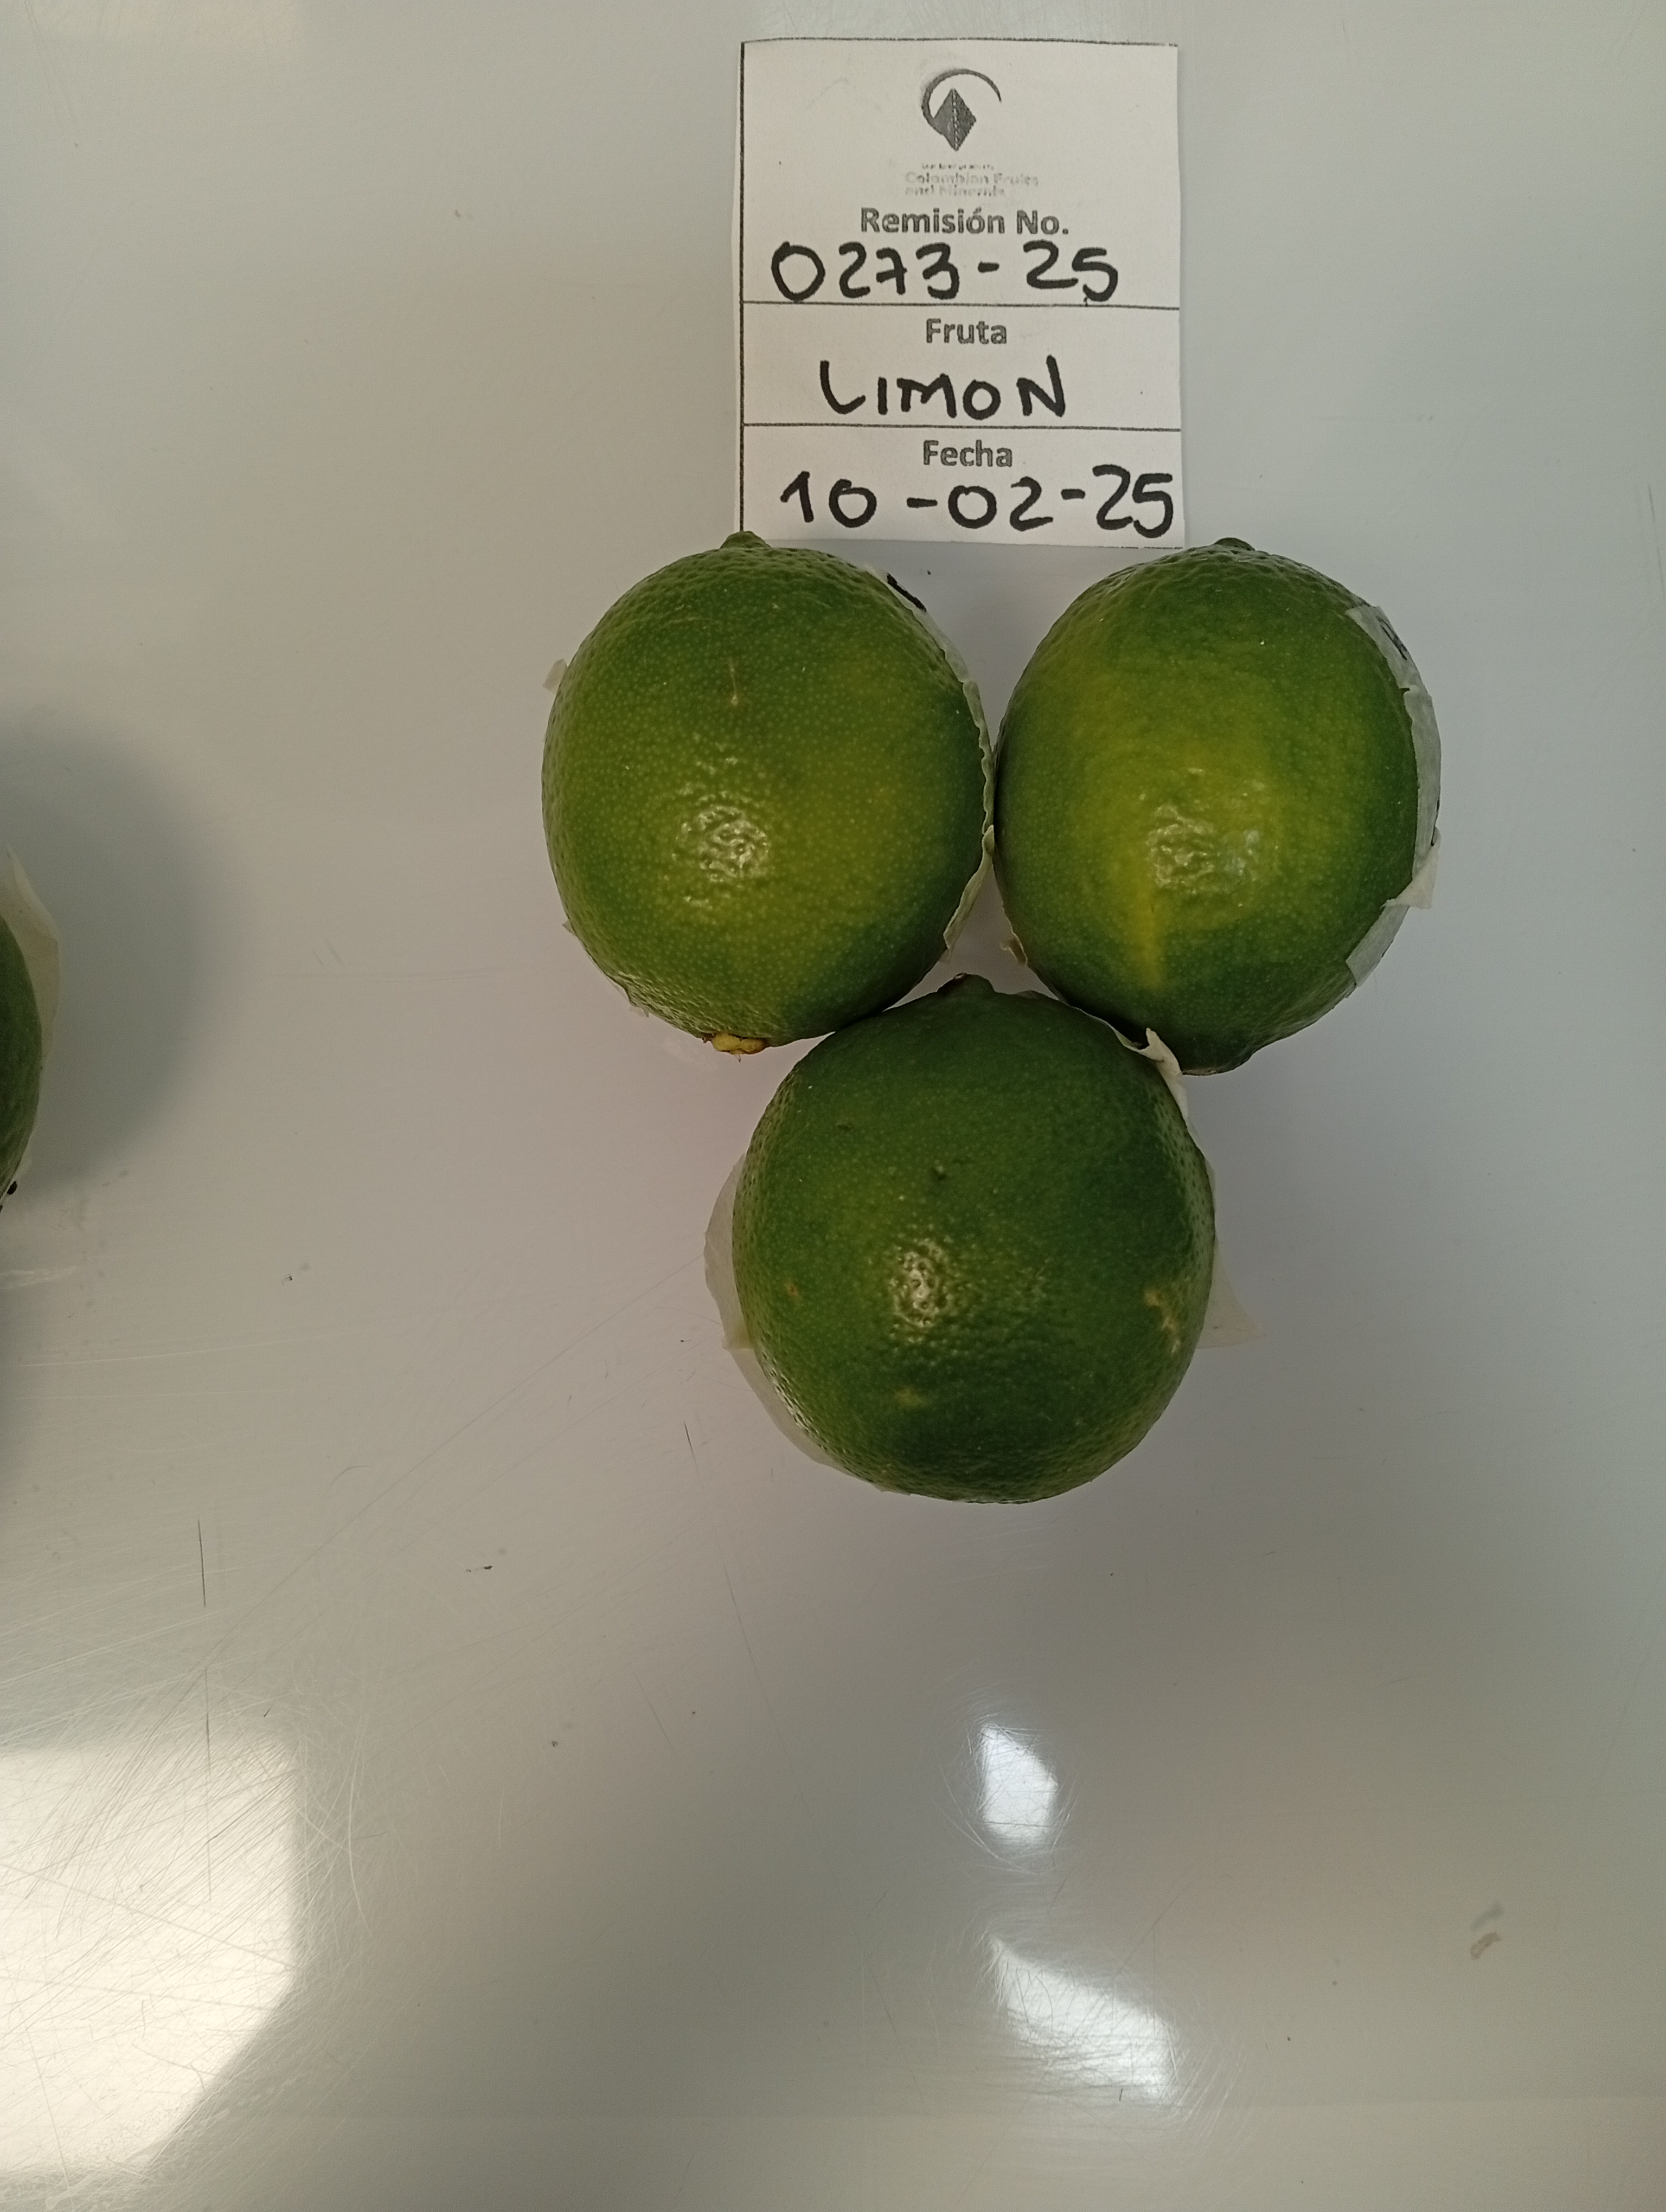 Colombian Fruits
and Minerals
Remisión No.
0273-25
Fruta
LIMON
Fecha
10-02-25